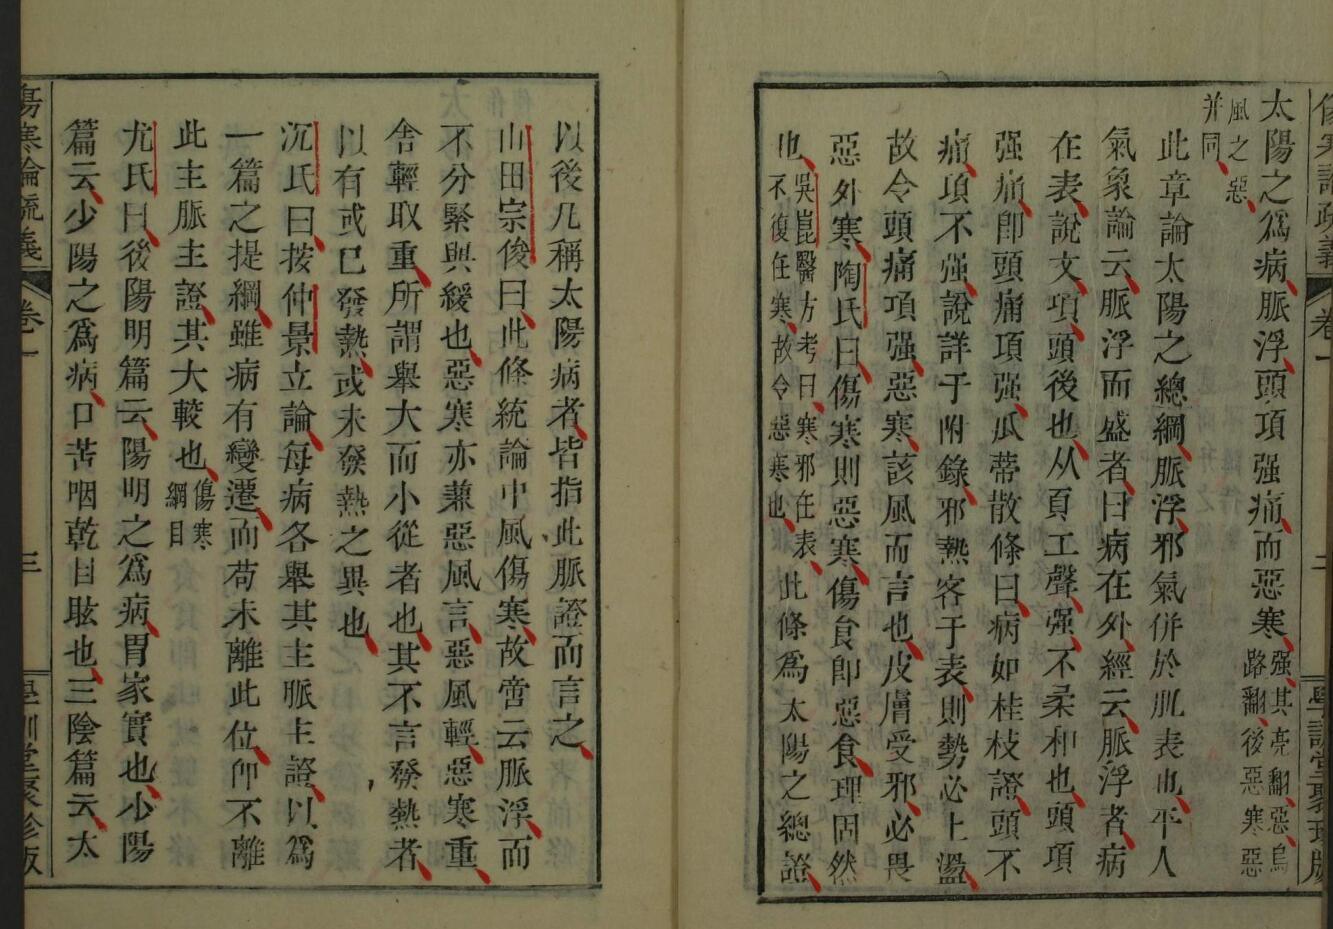 傷寒論疏義 卷一 二 學訓堂聚珍版
太陽之爲病、脈浮、頭項强痛、而惡寒、强、其亮翻、惡、烏
路翻、後惡寒惡
風之惡、
并同、
此章論太陽之總綱、脈浮、邪氣併於肌表也、平人
氣象論云、脈浮而盛者、曰病在外、經云、脈浮者、病
在表、說文、項、頭後也、从頁工聲、强、不柔和也、頭項
强痛、卽頭痛項强、瓜蒂散條曰、病如桂枝證、頭不
痛、項不强、說詳于附錄、邪熱客于表、則勢必上盪、
故令頭痛項强、惡寒、該風而言也、皮膚受邪、必畏
惡外寒、陶氏曰、傷寒則惡寒、傷食卽惡食、理固然
也、吳崑醫方考曰、寒邪在表、
不復任寒、故令惡寒也、
此條爲太陽之總證、
以後凡稱太陽病者、皆指此脈證而言之、
山田宗俊曰、此條統論中風傷寒、故啻云脈浮、而
不分緊與緩也、惡寒亦兼惡風言、惡風輕、惡寒重、
舍輕取重、所謂舉大而小從者也、其不言發熱者、
以有或已發熱、或未發熱之異也、
沉氏曰、按仲景立論、每病各舉其主脈主證、以爲
一篇之提綱、雖病有變遷、而苟未離此位、卽不離
此主脈主證、其大較也、傷寒
綱目
尤氏曰、後陽明篇云、陽明之爲病、胃家實也、少陽
篇云、少陽之爲病、口苦咽乾目眩也、三陰篇云、太
傷寒論疏義 卷一 三 學訓堂聚珍版